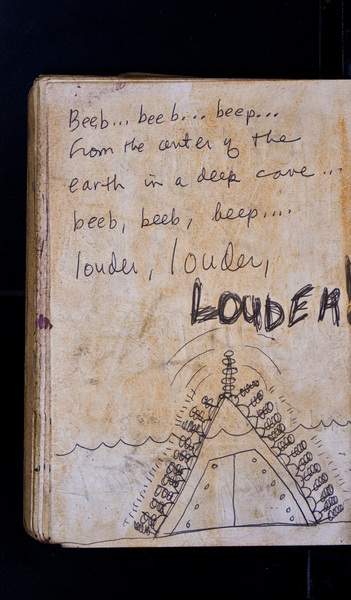 Beeb... beeb... beep...
From the center of the
earth in a deep cave...
beeb, beeb, beep....
louder, louder,
LOUDER!